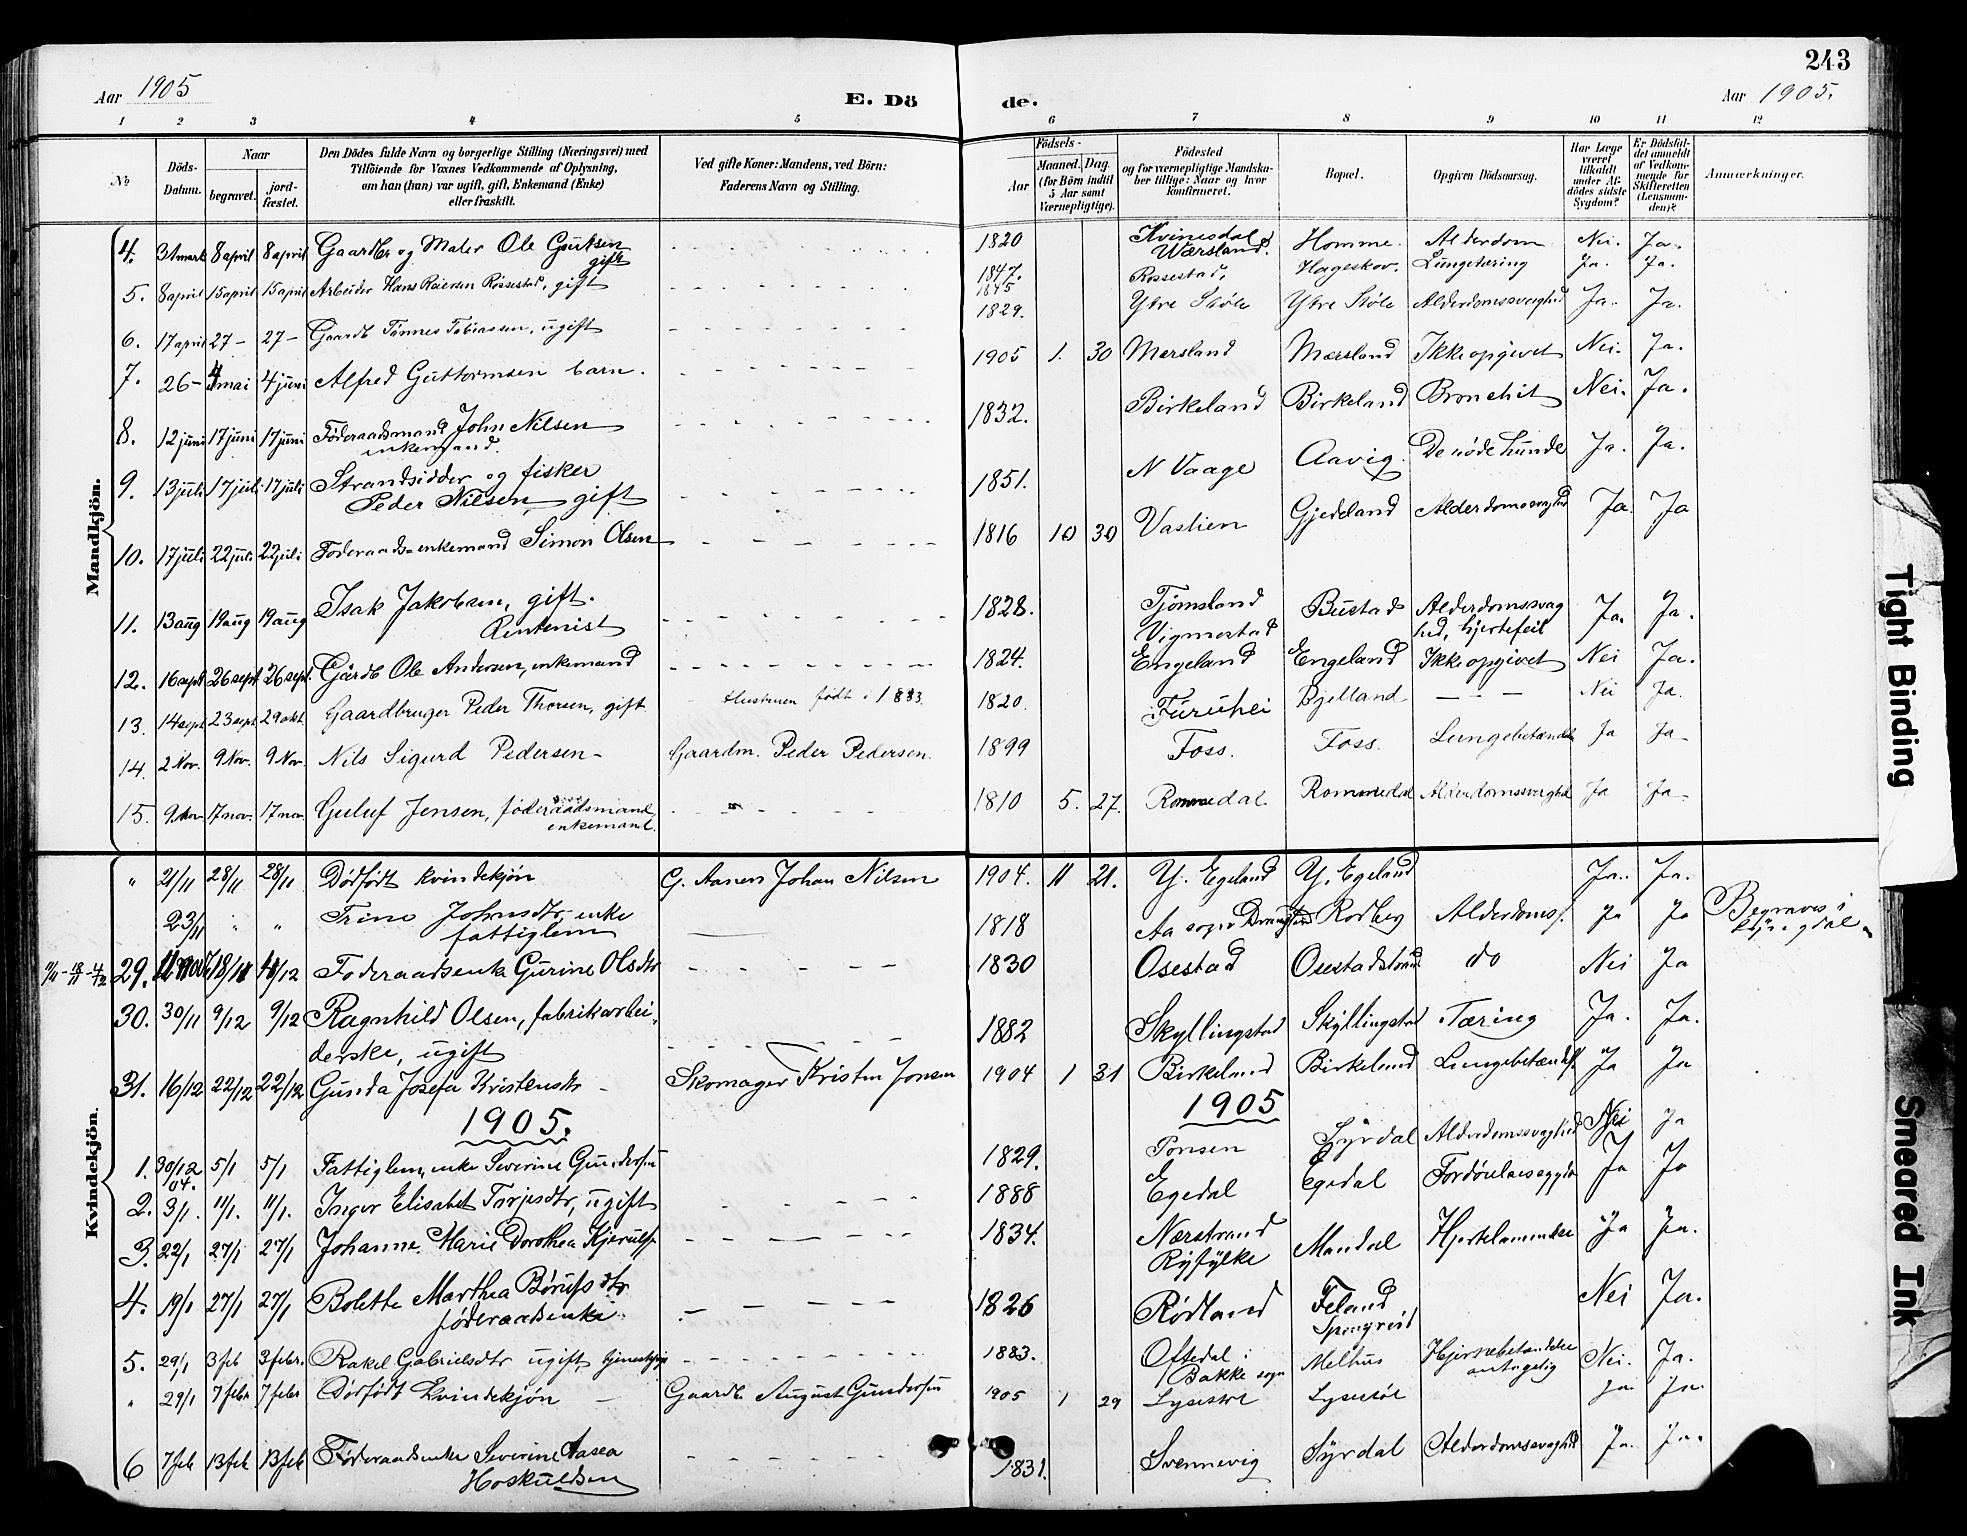 243
Aar 1905
E. Dö
de.
Aar 1905.
1 2 3 4 5 6 7 8 9 10 11 12
No
Döds-Datum.
Naar
begravet.
jord-fæstet.
Den Dödes fulde Navn og borgerlige Stilling (Næringsvei) med
Tilföiende for Voxnes Vedkommende af Oplysning,
om han (hun) var ugift, gift, Enkemand (Enke)
eller fraskilt.
Ved gifte Koner: Mandens, ved Börn:
Faderens Navn og Stilling.
Födsels-
Aar
Maaned. Dag.
(for Börn indtil
5 Aar samt
Værnepligtige).
Födested
og for værnepligtige Mandska-
ber tillige: Naar og hvor
konfirmeret.
Bopæl.
Opgiven Dödsaarsag.
Har Læge
været
tilkaldt
under Af-
dödes sidste
Sygdom?
Er Dödsfal-
det anmeldt
af Vedkom-
mende for
Skifteretten
(Lensman-
den)?
Anmærkninger.
Mandkjön.
4. 31 mars 8 april 8 april Gaardbr og Maler Ole Guttsen gift 1820 Kvinesdal Wærsland Homme. Alderdom Nei. Ja.
5. 8 april 15 april 15 april Arbeider Hans Reiersen Rossestad, gift 1847. 1845 Rossestad, Hageskov. Lungetæring Ja. Ja.
6. 17 april 27 – 27 – Gaardb Tønnes Tobiassen, ugift 1829. Ytre Støle Ytre Støle Alderdomssvaghed Ja. Ja.
7. 26 – 4 mai 4 juni Alfred Guttormsen barn. 1905 1. 30 Mersland Mærsland Ikke opgivet Nei. Ja.
8. 12 juni 17 juni 17 juni Føderaadsmand John Nilsen enkemand. 1832. Birkeland Birkeland Bronchit Nei. Ja.
9. 13 juli 17 juli 17 juli Strandsidder og fisker Peder Nilsen gift 1851. N Vaage Aavig. De røde hunde Ja. Ja.
10. 17 juli 22 juli 22 juli Føderaads-enkemand Simon Olsen 1816 10 30 Vaslien Gjedeland Alderdomssvaghed Ja. Ja
11. 13 aug 19 aug 19 aug Isak Jakobsen, gift. Rentenist 1828. Tjomsland Vigmostad Bustad Alderdomssvaghed, hjertefeil Ja. Ja.
12. 16 sept 26 sept 26 sept. Gårdb Ole Andersen, enkemand 1824. Engeland Engeland Ikke opgivet Nei Ja.
13. 14 sept 23 sept 29 okt Gaardbruger Peder Thorsen, gift Hustruen født i 1833 1820. Furuhei Bjelland – – – Nei Ja.
14. 2 Nov. 9 Nov. 9 Nov. Nils Sigurd Pedersen – Gaardm. Peder Pedersen. 1899 Foss. Foss. Lungebetændels Ja Ja
15. 9. Nov 17 nov. 17 nov. Guluf Jensen, føderaadsmand, enkemand. 1810 5. 27. Rommedal. Rommedal Alderdomssvaghed Ja Ja
Kvindekjön.
" 21/11 28/11 28/11 Dødfødt kvindekjön G. Aanen Johan Nilsen 1904. 11 21. Y. Egeland Y. Egeland Ja. Ja.
23/11 " " Trine Johnsdtr, enke fattiglem 1818 Aa sogn Rodberg Alderdoms. Ja Ja Begraves i Lyngdal.
29. 18/11 4/12 Føderaadsenke Gurine Olsdtr 1830 Osestad Osestadstrand do Nei Ja
30. 30/11 9/12 9/12 Ragnhild Olsen, fabrikarbei-
derske, ugift 1882 Skyllingstad Skyllingstad Tæring Ja. Ja.
31. 16/12 22/12 22/12 Gunda Josefa Kristensdtr – Skomager Kristen Jonsen 1904 1 31 Birkeland Birkeland Lungebetændels. Ja Ja
1905. 1905
1. 30/12 04. 5/1 5/1 Fattiglem, enke Severine Gundersen 1829. Ponsen Syrdal Alderdomssvaghed Nei ja
2. 3/1. 11/1. 11/1. Inger Elisabet Tarjesdtr, ugift 1888 Egedal Egedal Ja Ja
3. 22/1 27/1 27/1 Johanne Marie Dorothea Kjerulf. 1834. Nærstrand Ryfylke Mandal Hjertelammelse Ja Ja.
4. 19/1 27/1 27/1 Bolette Marthea Børufsdtr føderaadsenke 1826 Rødland Feland Spangereid Nei Ja.
5. 29/1 3 feb 3 febr. Rakel Gabrielsdtr ugift tjenestepige 1883. Oftedal i Bakke sogn Melhus Hjernebetændelse antagelig Nei. Ja.
" 29/1 7 febr 7 febr Dødfødt Kvindekjön – Gaardb. August Gundersen 1905 1 29 Lysestøl Lysestøl Ja. Ja.
6 7 feb 13 feb 13 feb Føderaadsenke Severine Aasea Hoskuldsen 1831. Svennevig Syrdal Alderdomssvaghed Ja. Ja.
Tight Binding
Smeared Ink